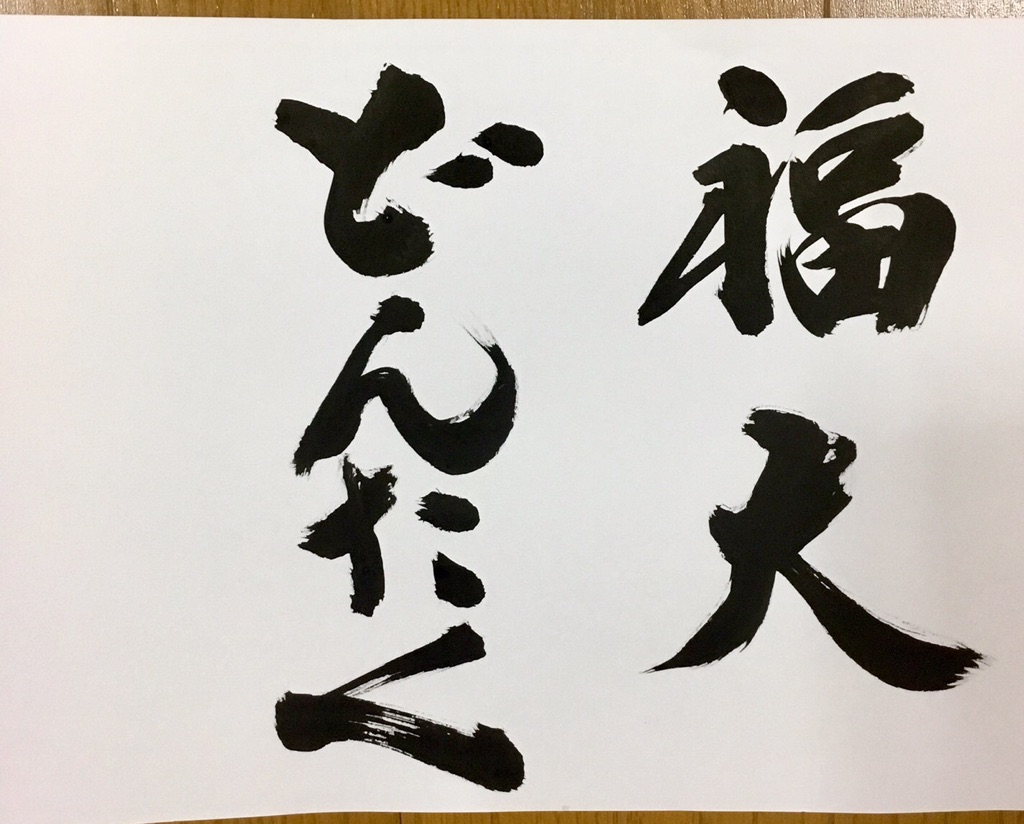 福大
どんたく